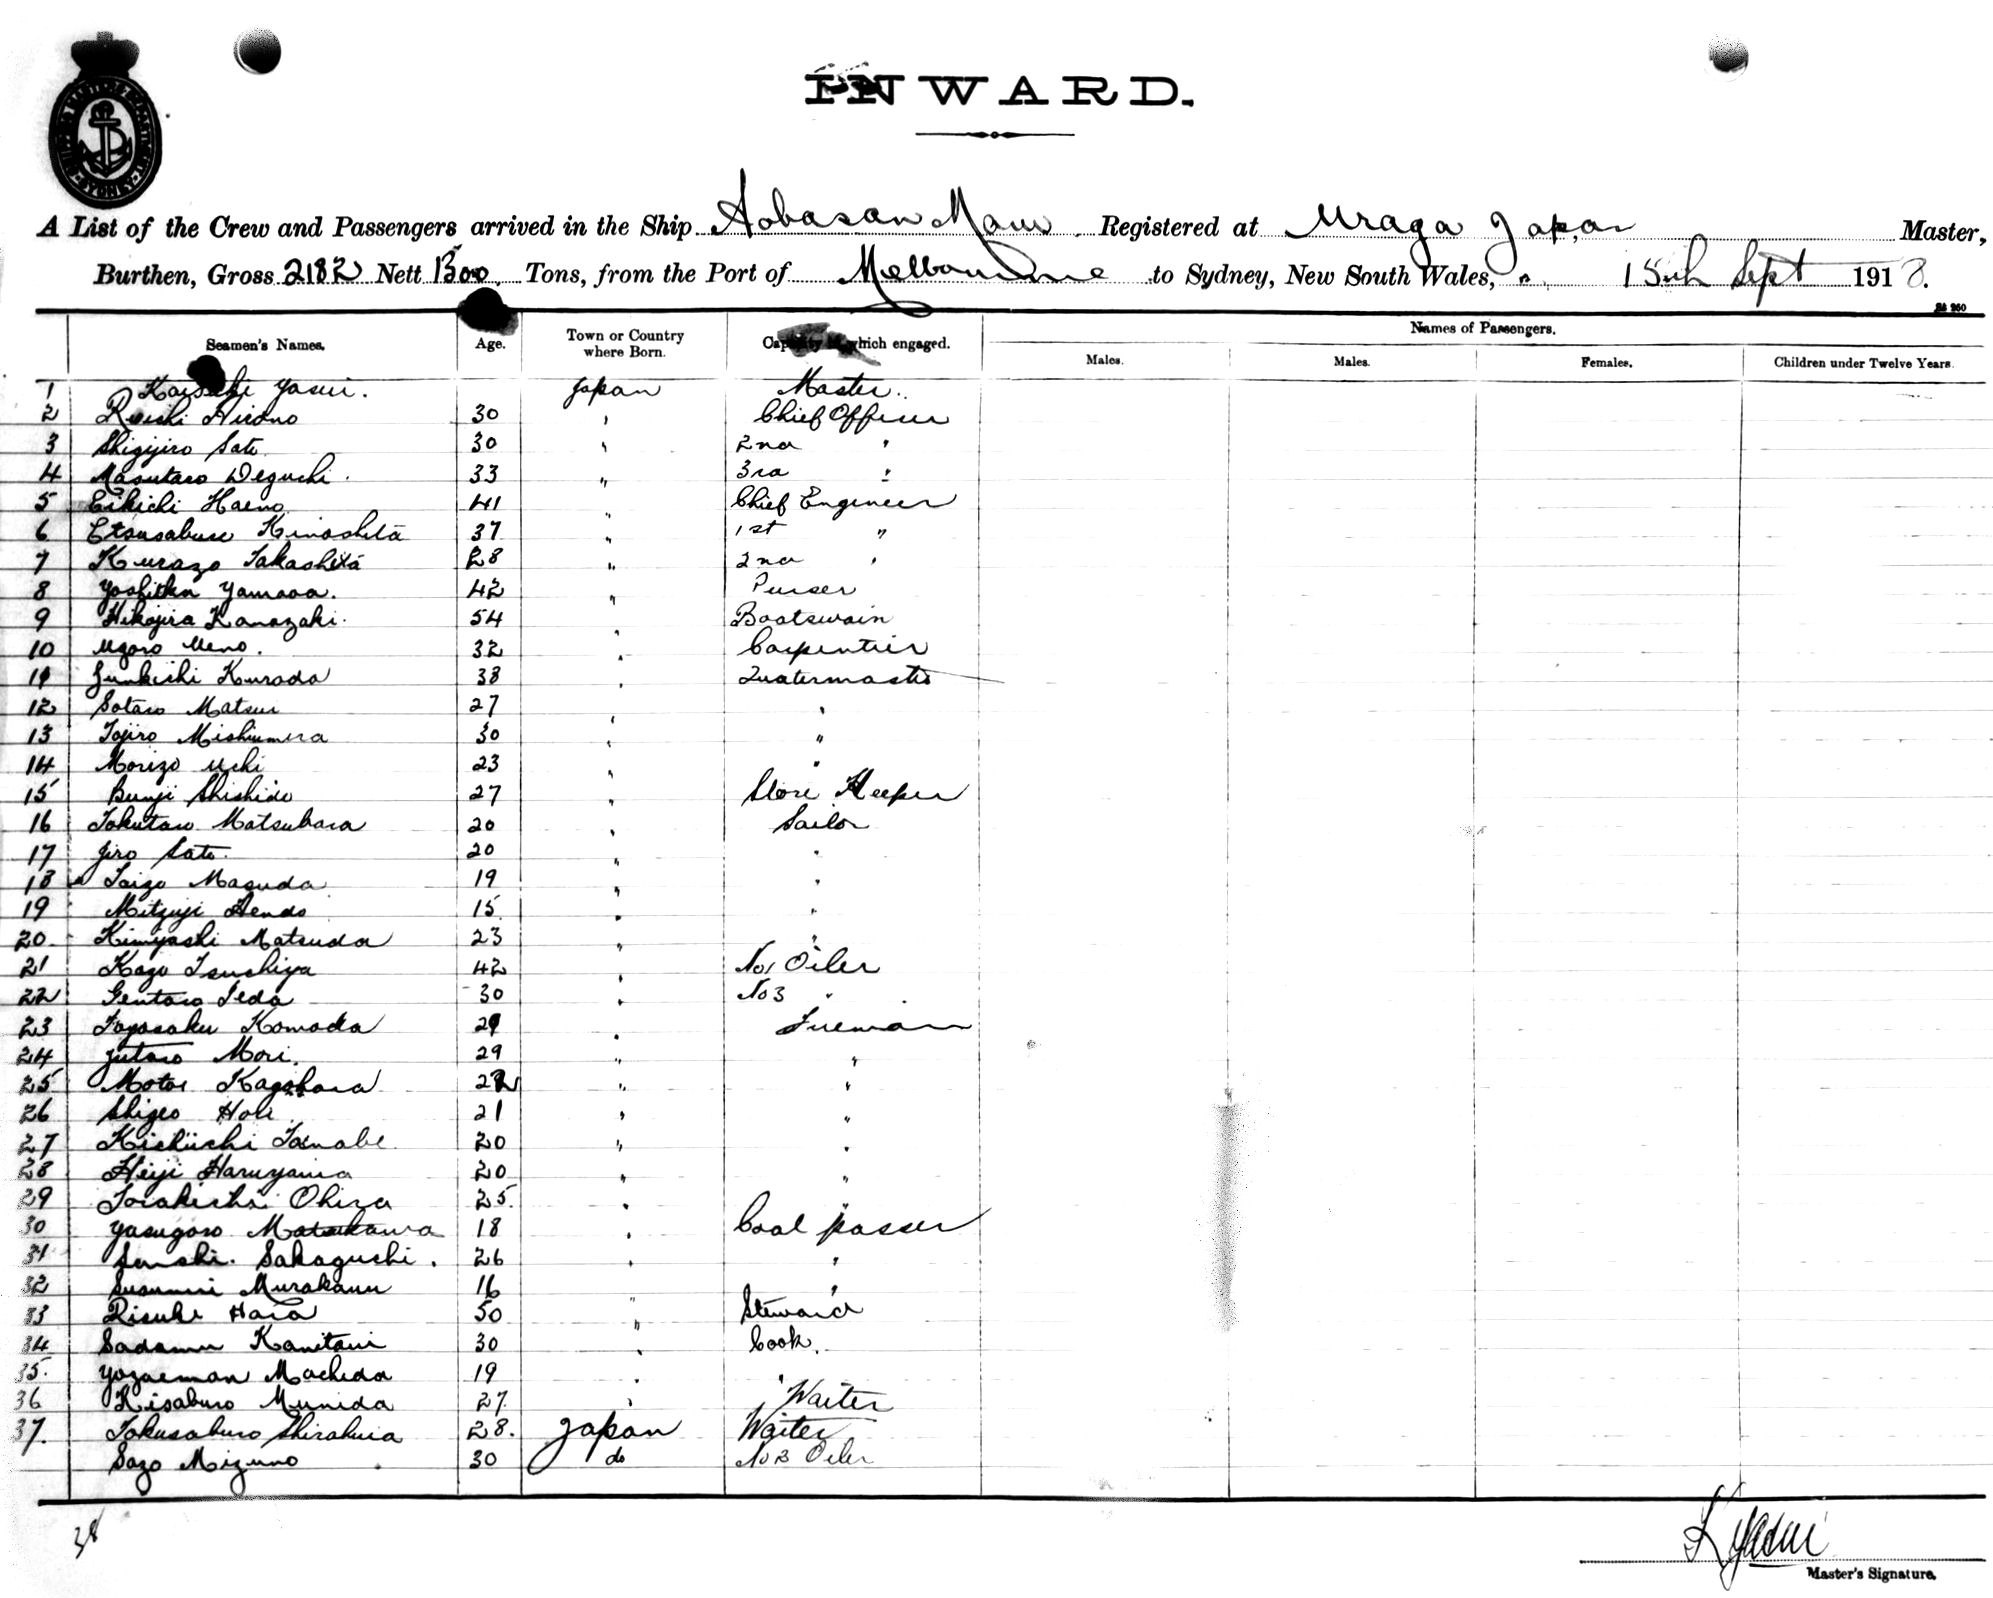 INWARD.
A List of the Crew and Passengers arrived in the Ship Aobasan Maru Registered at Uraga Japan Master,
Burthen, Gross 2182 Nett 1300 Tons, from the Port of Melbourne to Sydney, New South Wales, 15th Sept 1918.
Names of Passengers.
Seamen's Names. Age. Town or Country where Born. Capacity in which engaged. Males. Males. Females. Children under Twelve Years.
1 Yasui. Japan Master.
2 Hirono 30 " Chief Officer
3 Shigijiro Sato 30 " 2nd "
4 Masutaro Deguchi. 33 " 3rd "
5 Eikichi Haeno 41 " Chief Engineer
6 Etsusabure Kinoshita 37 " 1st "
7 Kurazo Takashita 28 " 2nd "
8 Yoshitka Yamaoa. 42 " Purser
9 Hikojira Kanazaki. 54 " Boatswain
10 Ugoro Ueno. 32 " Carpentier
11 Junkichi Kuroda 38 " Quatermaster
12 Sotaro Matsui 27 " "
13 Tojiro Mishiumera 30 " "
14 Morizo Uchi 23 " "
15 Bunji Shishido 27 " Store Keeper
16 Tokutaro Matsubara 20 " Sailor
17 Jiro Sato. 20 " "
18 Taizo Masuda 19 " "
19 Mitzuji Aendo 15 " "
20. Kimyoshi Matsuda 23 " "
21 Kazo Tsuchiya 42 " No1 Oiler
22 Gentaro Ieda 30 " No3 "
23 Toyosaku Komada 29 " Fireman
24 Jutaro Mori. 29 " "
25 Motoi Kagohara 22 " "
26 Shigeo Hori 21 " "
27 Kichiichi Tanabe 20 " "
28 Heiji Haruyama 20 " "
29 Torakichi Ohira 25. " "
30 Yasugoro Matsukawa 18 " Coal passer
31 Senshi. Sakaguchi. 26 " "
32 Susumi Murakami 16 " "
33 Risuke Hara 50 " Steward
34 Sadamu Kanitani 30 " Cook.
35. Yozaeman Macheda 19 " "
36 Kisaburo Munida 27. " Waiter
37. Tokusaburo Shirahira 28. Japan Waiter
Sazo Mizuno 30 do No2 Oiler
38
K Yasui
Master's Signature.